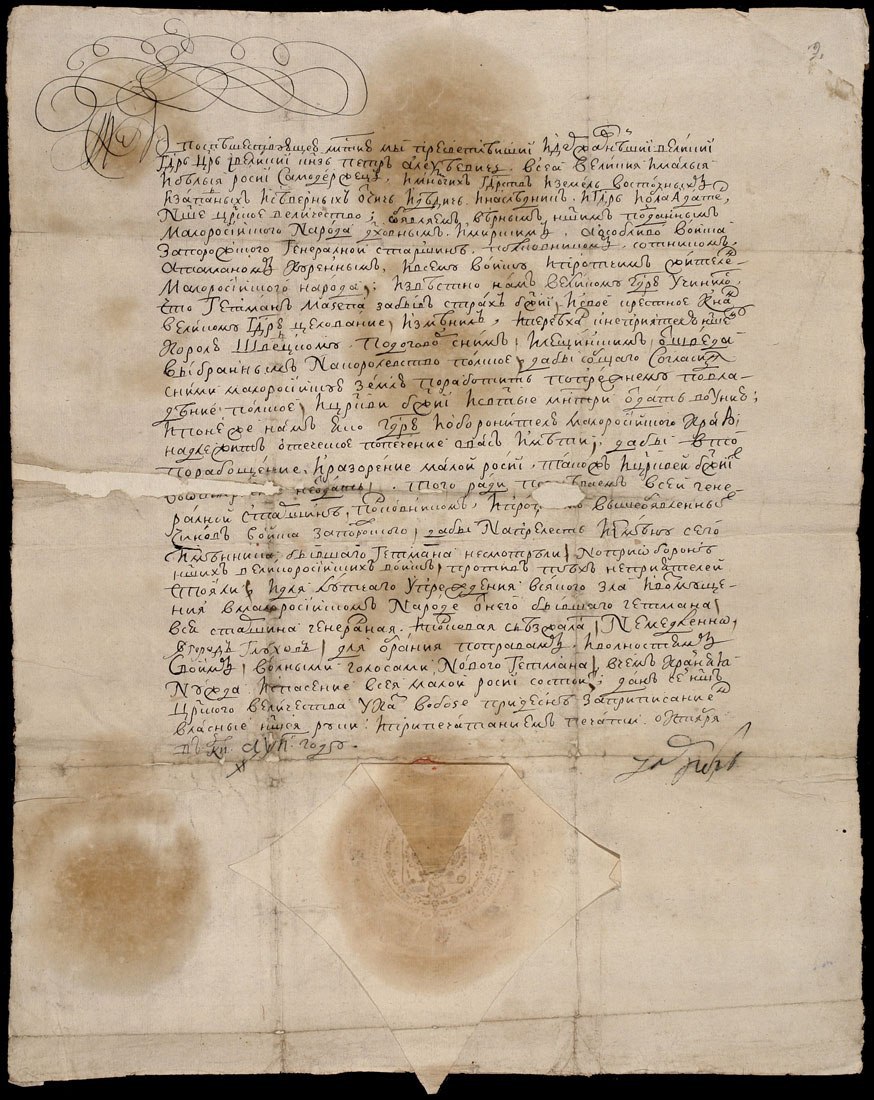 поспѣшествующею млстию мы пресвѣтлѣйший и державнѣйший великий
гдрь црь и великий кнзь петръ алеѯѣевичь всеа великия и малыя
и бѣлыя росии самодержецъ, и многихъ гдрствъ и земель восточныхъ
и западныхъ и сѣверныхъ отчичь и дѣдичь и наслѣдникъ и гдрь и обладатель,
нше црское величество; обявляемъ вѣрнымъ ншимъ подданнымъ
малоросийского народа дховнымъ и мирскимъ, а особливо войска
запорожского генералной старшинѣ, полковникомъ, сотникомъ,
атаманомъ куреннымъ, и всему войску и протчимъ жителемъ
малоросийского народа; извѣстно намъ великому гдрю учинилось
что гетманъ мазепа забывъ страхъ бжий, и свое крестное к намъ
великому гдрю целование, измѣнилъ, и переѣхалъ к неприятелю ншему
королю швецкому по договору с нимъ, и лещинскимъ, от шведа
выбраннымъ на королевство полское, дабы со общаго согласия
с ними малоросийскую землю поработить по прежнему под вла-
дѣние полское, и цркви бжии и сятые мнстри отдать во унию;
и понеже намъ яко гдрю и оборонителю малоросийского края
надлежитъ отеческое попечение о васъ имѣти; дабы в то
порабощение, и разорение малой росии, також и црквей бжиих
не отдать, того ради повелѣваемъ всей гене-
ралной старшинѣ, и полковникомъ, и протчимъ вышеобявленныхъ
чиновъ войска запорожского, дабы на прелесть и измѣну сего
измѣнника, бывшаго гетмана не смотрѣли, но при оборонѣ
нших великоросийских войскъ, противъ тѣхъ неприятелей
стояли; и для лутчаго упреждения всякого зла и возмуще-
ния в малоросийскомъ народе от него бывшаго гетмана,
вся старшина генералная и полковая съѣзжалась, немедленно
в городъ глуховъ, для обрания по правамъ и волностямъ
своимъ, волными голосами нового гетмана, в чемъ крайняя
нужда и спасение всея малой росии состоитъ; данъ сей ншъ
црского величества указ в обозе при деснѣ за приписаниемъ
власные ншея руки и при припечатаниемъ печати октября
въ ки҃ аѱи҃ году.
Петръ